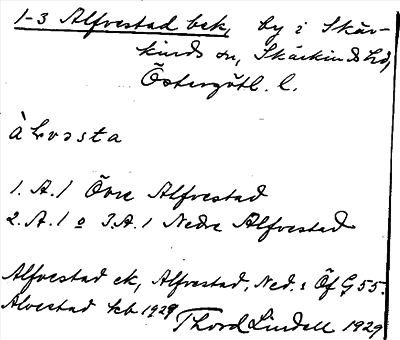 1-3 Alfvestad bek, by i Skär-
kinds sn, Skärkinds hd,
Östergötl. l.
àlvəsta
1. A. 1 Övre Alfvestad
2. A. 1 o 3. A. 1 Nedre Alfvestad
Alfvestad ek, Alfvestad, Ned. o Öf G 55.
Alvestad kb 1929
Thord Lindell 1929